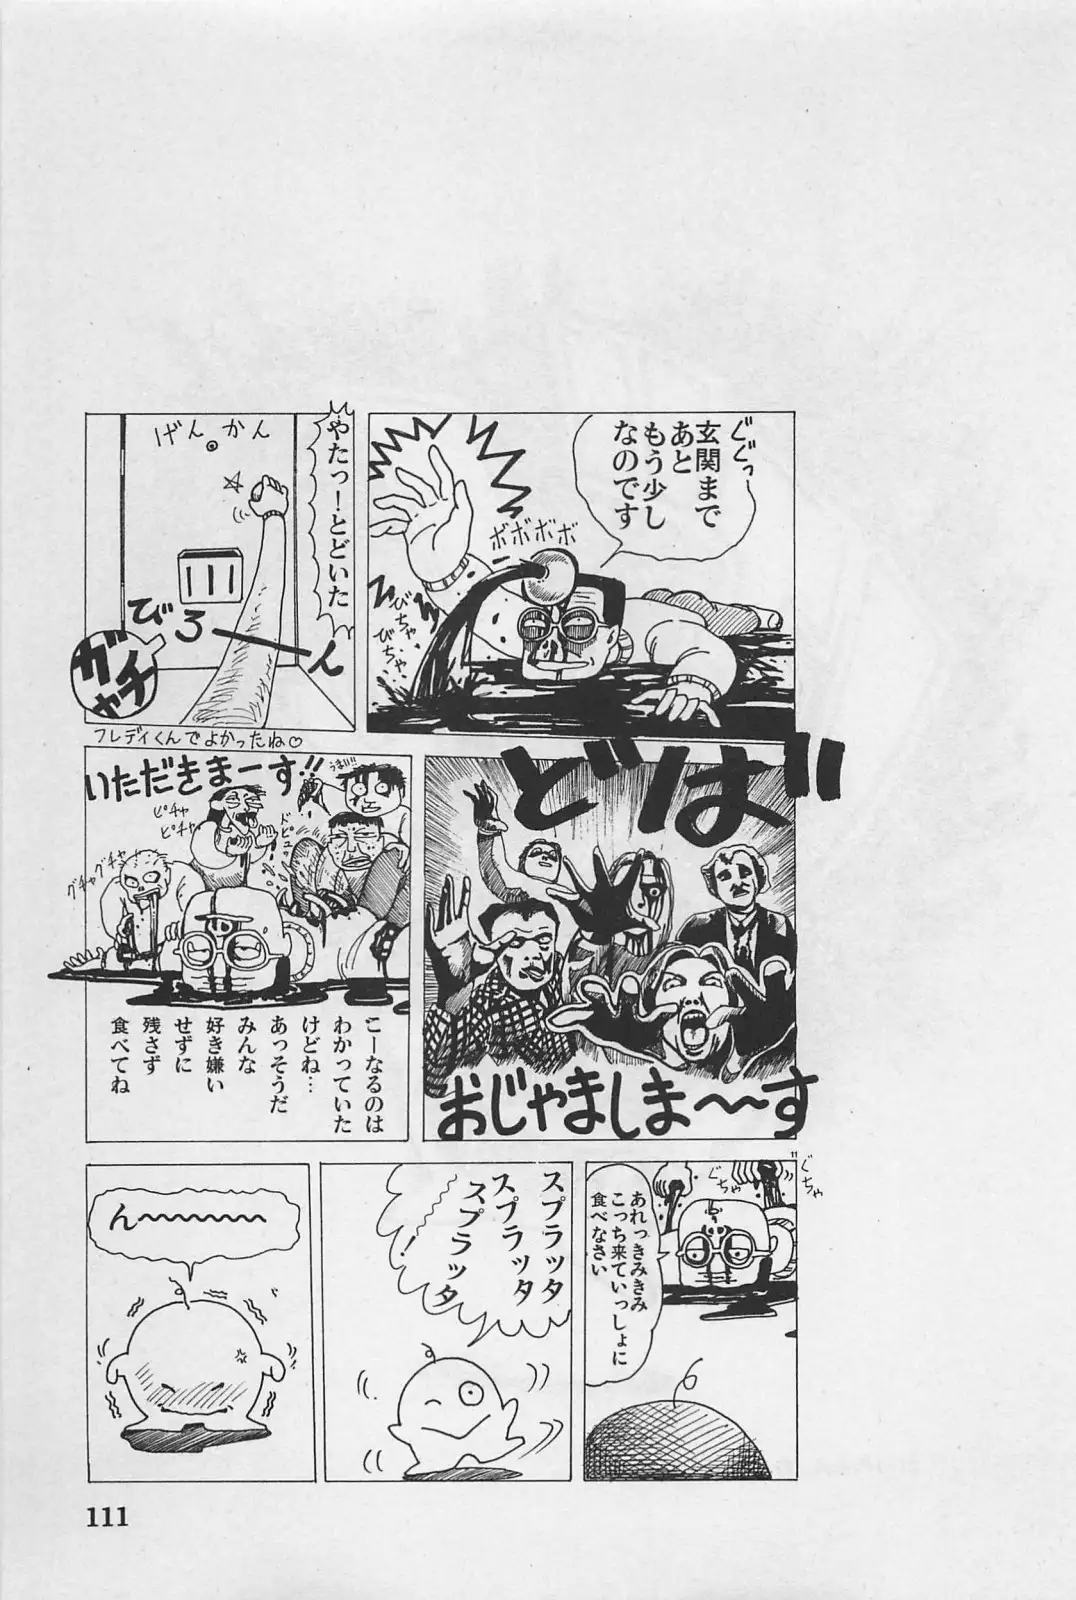 ぐぐっ
玄関まで
あと
もう少し
なのです
ボボボボ
びちゃ
びちゃ
やたっ!とどいた
げんかん
びろーん
ガチャ
フレディくんでよかったね♡
どばっ
おじゃましま〜〜す
いただきまーす!!
うまい
ピチャ
ピチャ
ドピュ
グチャグチャ
こーなるのは
わかっていた
けどね…
あっそうだ
みんな
好き嫌い
せずに
残さず
食べてね
ぐちゃ
ぐちゃ
あれっきみきみ
こっち来ていっしょに
食べなさい
スプラッタ
スプラッタ
スプラッタ
〜〜〜!
ん〜〜〜〜〜〜
111